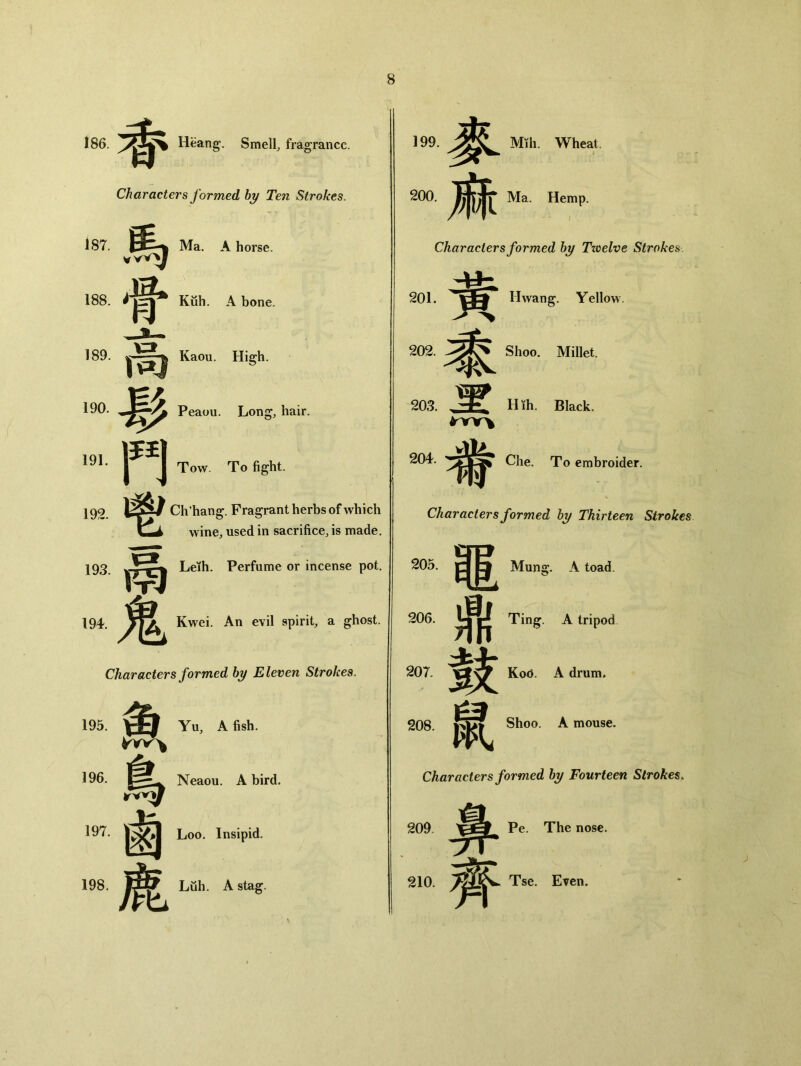 8
186. 香 Hëang. Smell, fragrance.
Characters formed by Ten Strokes.
187. 馬 Ma. A horse.
188. 骨 Kŭh. A bone.
189. 高 Kaou. High.
190. 髟 Peaou. Long, hair.
191. 鬥 Tow. To fight.
192. 鬯 Ch'hang. Fragrant herbs of which
wine, used in sacrifice, is made.
193. 鬲 Leĭh. Perfume or incense pot.
194. 鬼 Kwei. An evil spirit, a ghost.
Characters formed by Eleven Strokes.
195. 魚 Yu, A fish.
196. 鳥 Neaou. A bird.
197. 鹵 Loo. Insipid.
198. 鹿 Lŭh. A stag.
199. 麥 Mĭh. Wheat.
200. 麻 Ma. Hemp.
Characters formed by Twelve Strokes.
201. 黃 Hwang. Yellow.
202. 黍 Shoo. Millet.
203. 黑 Hĭh. Black.
204. 黹 Che. To embroider.
Characters formed by Thirteen Strokes
205. 黽 Mung. A toad.
206. 鼎 Ting. A tripod
207. 鼓 Koó. A drum.
208. 鼠 Shoo. A mouse.
Characters formed by Fourteen Strokes.
209. 鼻 Pe. The nose.
210. 齊 Tse. Even.